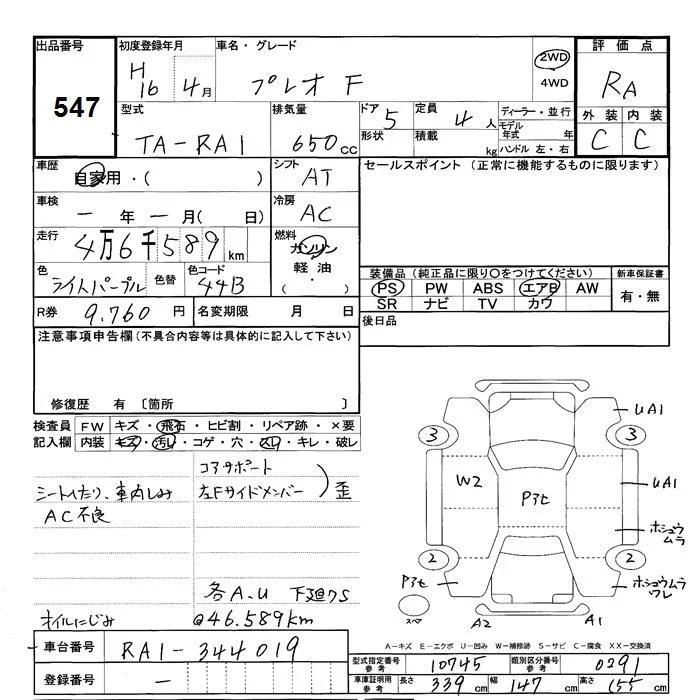 出品番号
547
初度登録年月
H16 4月
車名・グレード
プレオ F
2WD
4WD
評価点
RA
外装 内装
C C
型式
TA-RA1
排気量
650cc
ドア 5
形状
定員 4人
積載 kg
ディーラー・並行
モデル年式 年
ハンドル 左・右
車歴
自家用・( )
シフト
AT
セールスポイント (正常に機能するものに限ります)
車検
一年一月( 日)
冷房
AC
走行
4万6千589km
燃料
ガソリン
軽油
( ・ )
色
ライトパープル
色替
色コード
44B
装備品(純正品に限り○をつけてください)
新車保証書
PS PW ABS エアB AW
SR ナビ TV カワ
有・無
R券 9.760円
名変期限 月 日
後日品
注意事項申告欄(不具合内容等は具体的に記入して下さい)
修復歴 有 〔箇所 〕
検査員 FW キズ・飛石・ヒビ割・リペア跡・×要
記入欄 内装 キズ・汚れ・コゲ・穴・スレ・キレ・破レ
コアサポート
シートへたり、車内しみ
左Fサイドメンバー
歪
AC不良
各A.U 下廻りS
オイルにじみ
@46.589km
UA1
3 3
W2
Pアセ
UA1
ホシュウムラ
2 2
Pアセ
ホシュウムラ
ワレ
スペ
A2
A1
A-キズ E-エクボ U-凹み W-補修跡 S-サビ C-腐食 XX-交換済
車台番号 RA1-344019
登録番号 一
型式指定番号 参考 10745
類別区分番号 参考 0291
車庫証明用 参考 長さ 339cm 幅 147cm 高さ 155cm